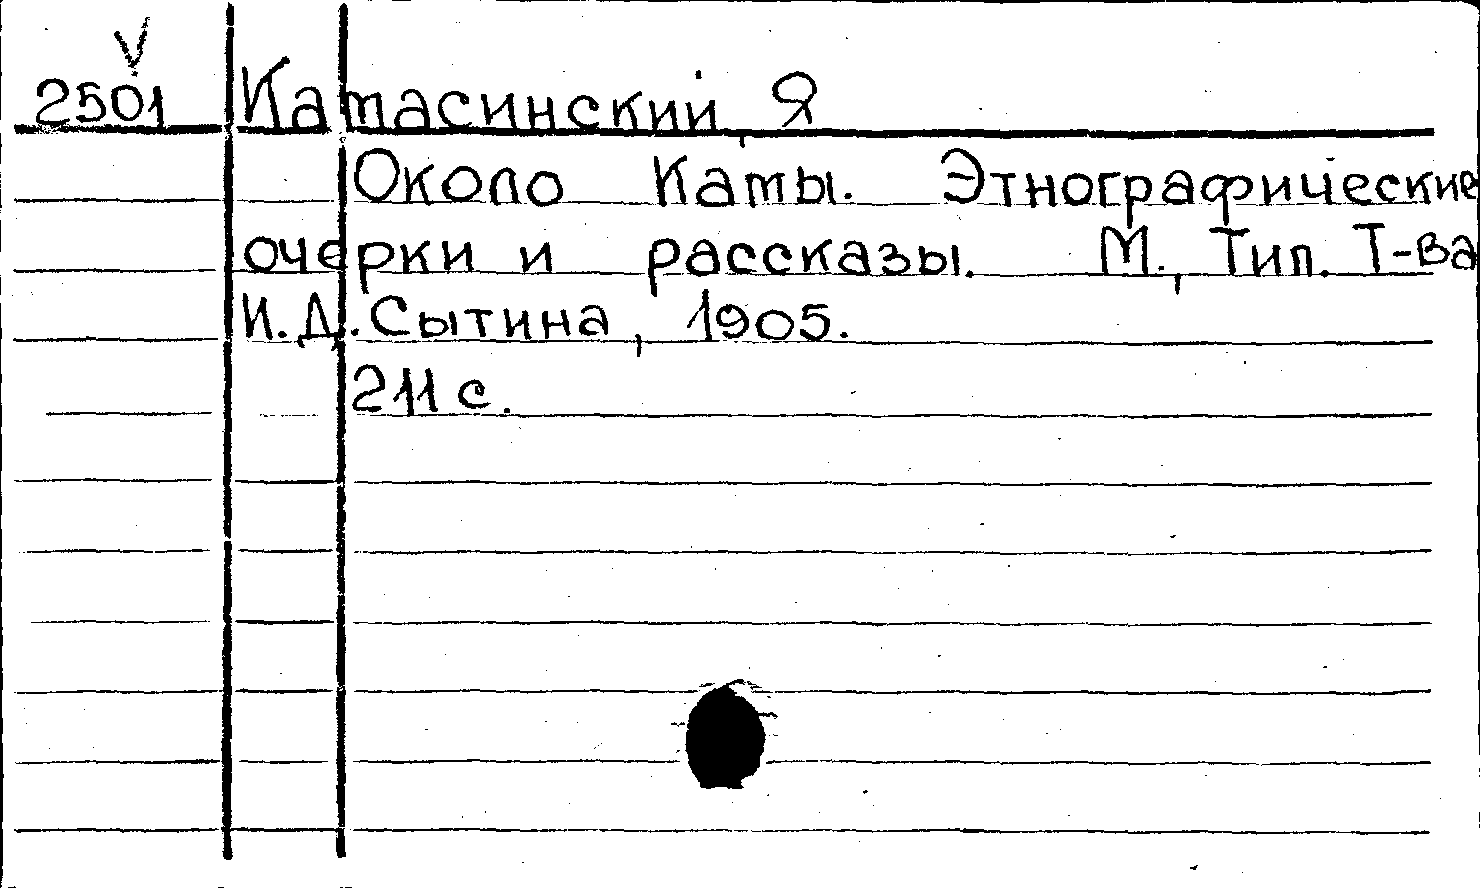 V
2501 Катасинский, Я
Около Каты. Этнографические
очерки и рассказы. М., Тип. Т-ва
И.Д. Сытина, 1905.
211 с.